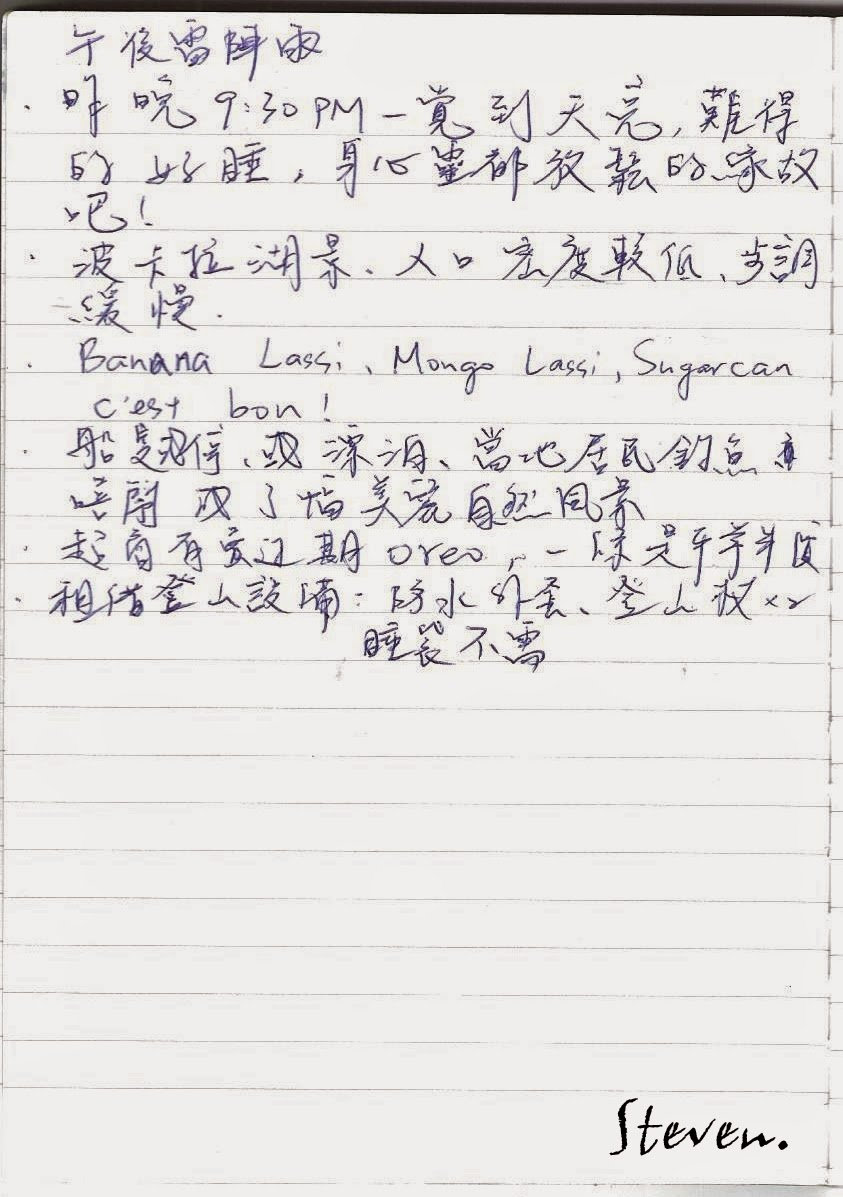 午後雷陣雨
· 昨晚 9:30 PM 一覺到天亮, 難得
的好睡, 身心靈都放鬆的緣故
吧!
· 波卡拉湖景、人口密度較低、步調
緩慢.
· Banana Lassi、Mongo Lassi, Sugarcan
c'est bon!
· 船隻、或漂泊、當地居民釣魚
悠閒 成了幅美麗自然風景
· 超商有賣過期 oreo, 一條是平常半價
· 租借登山設備: 防水外套、登山杖 x2
睡袋不需
Steven.